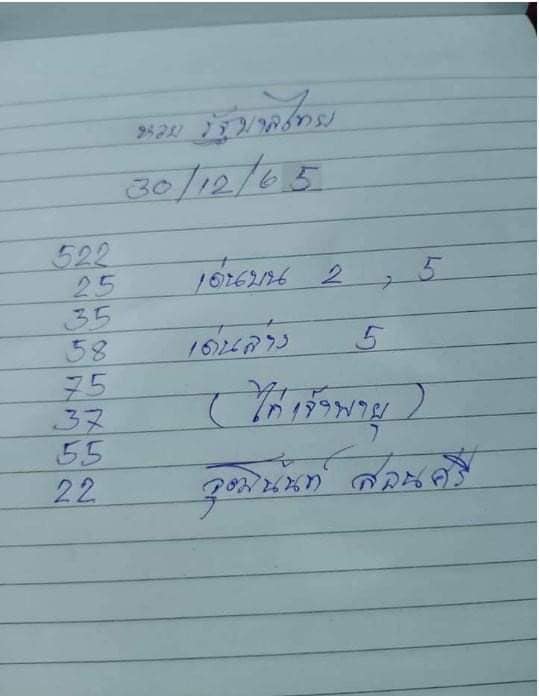 หวย รัฐบาลไทย
30/12/65
522
25 เด่นบน 2 , 5
35
58 เด่นล่าง 5
75
37 (ไก่เจ้าพายุ)
55
22 วุฒินันท์ สอนศรี